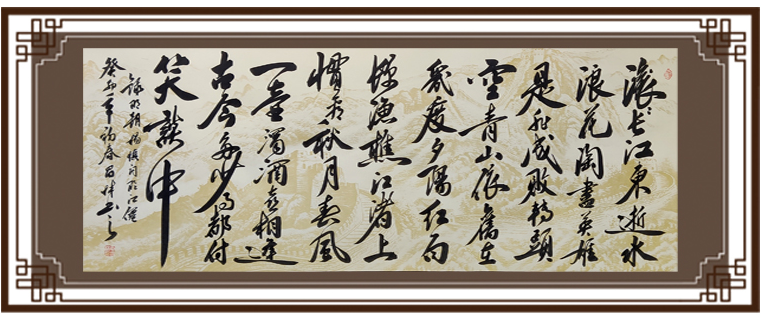 滚滚长江東逝水
浪花淘盡英雄
是非成败轉頭
空青山依舊在
幾度夕陽红白
髮渔樵江渚上
惯看秋月春風
一壺濁酒喜相逢
古今多少事都付
笑談中
録明朝楊慎词临江僊
癸卯年初春書之